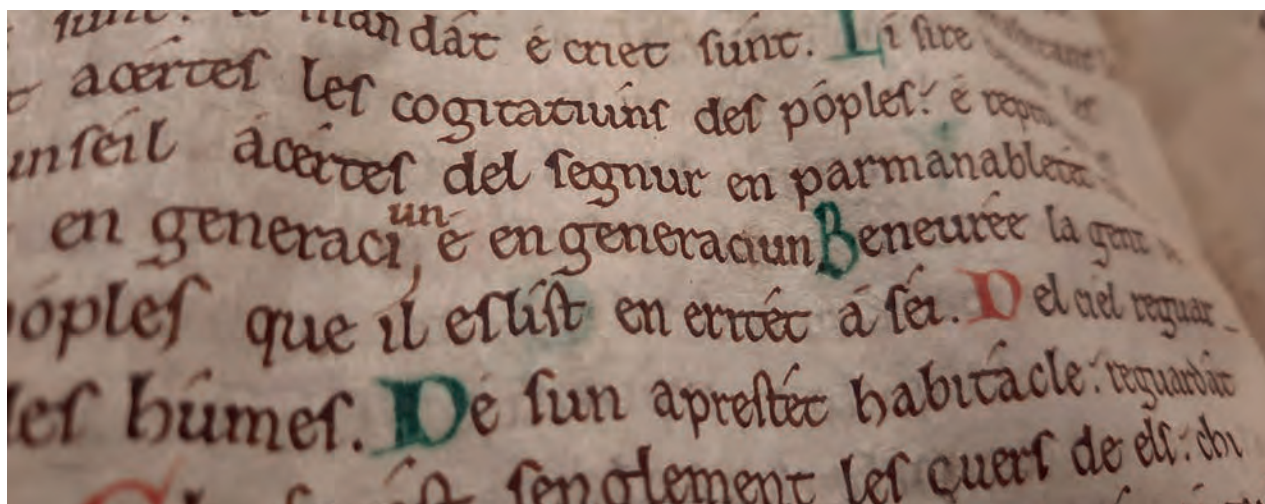 mandát é criet sunt. Li sire
acértes les cogitatiuns des póples: é
unseil ácértes del segnur en parmanableté
en generaciun, é en generaciun Beneurée la gent
póples que il eslist en eritét á séi. Del ciel reguar-
les húmes. Dé sun aprestét habitácle: reguardát
senglement les quers de els: chi